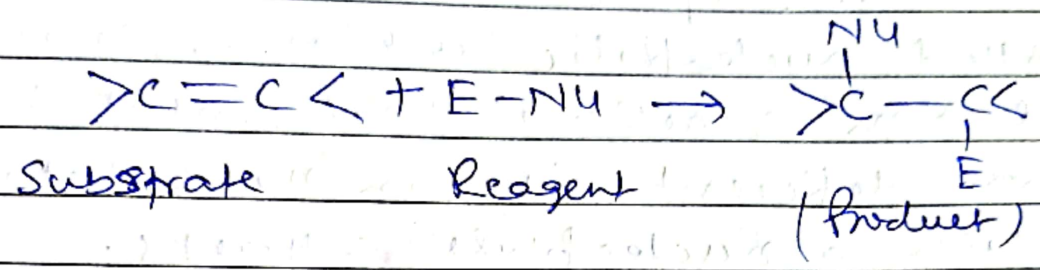 Nu
>C=C< + E-Nu → >C-C<
E
Substrate Reagent
(Product)